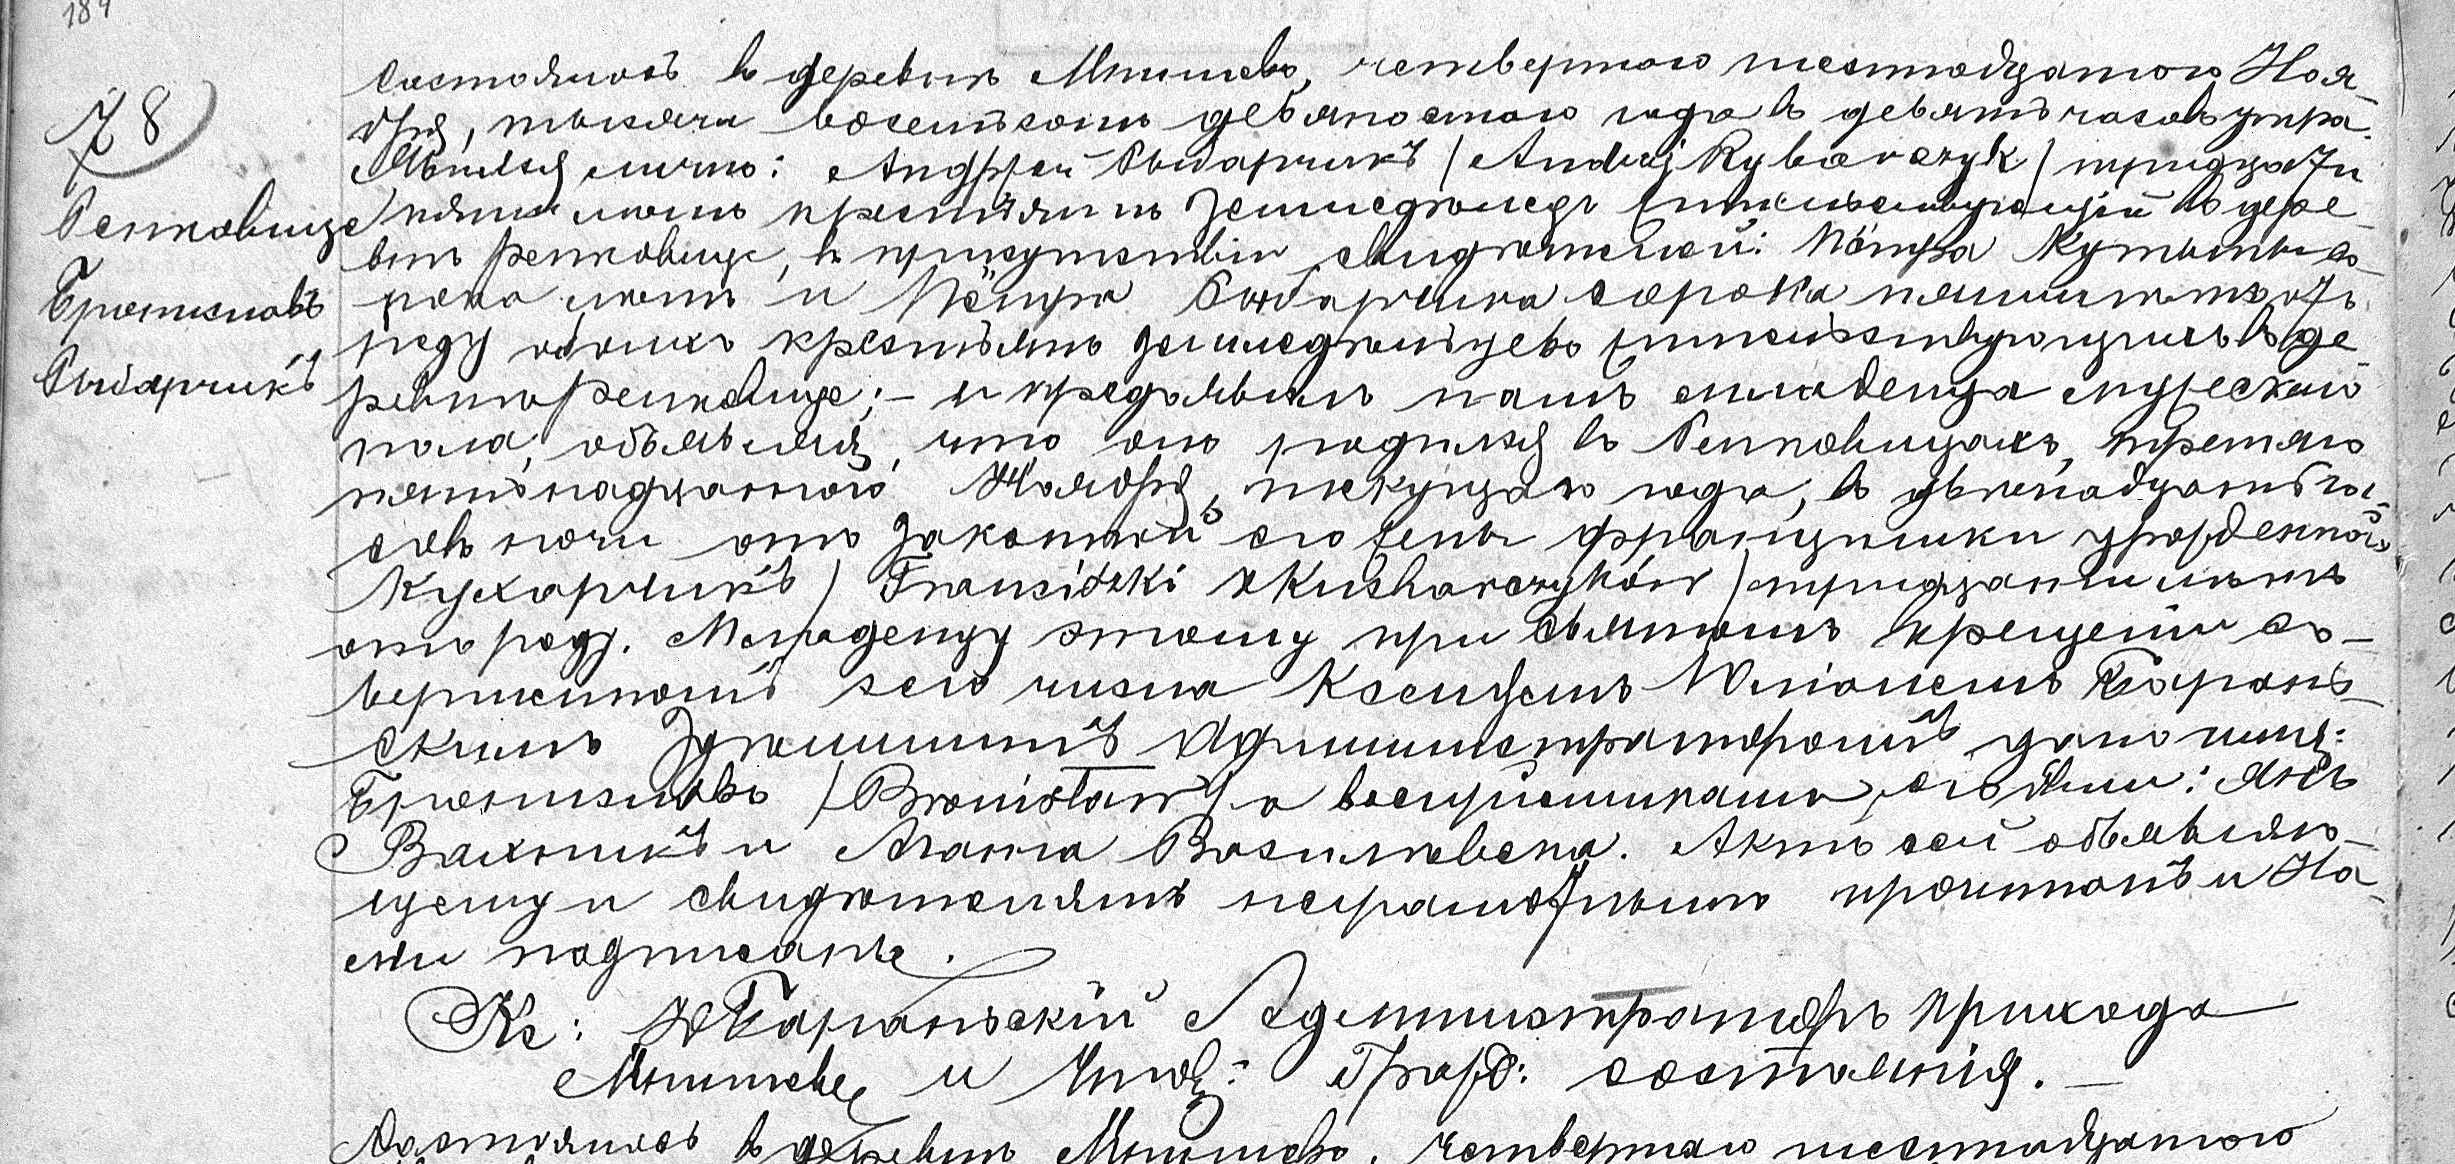 184
78
Рспковице
Брониславъ
Рыбарчикъ
Состоялось въ деревнѣ Мнишевъ, четвертаго шестнадцатаго Ноя-
бря, тысяча восемьсотъ девяностаго года въ девять часовъ утра.
Явился лично: Андрей Рыбарчикъ /Andrzej Rybarczyk/ тридцати
пяти лѣтъ крестьянинъ земледѣлецъ жительствующій въ дере-
внѣ, въ присутствіи свидѣтелей: Пётра со-
рока лѣтъ и Пётра Рыбарчика сорока пяти лѣтъ отъ
роду обоихъ крестьянъ земледѣльцевъ жительствующихъ въ де-
ревнѣ; – и предъявилъ намъ младенца мужескаго
пола, объявляя, что онъ родился въ третьяго
пятнадцатаго Ноября, текущаго года, въ двѣнадцать ча-
совъ ночи отъ законной его жены Францишки урожденной
Кухарчикъ /Franciszki z Kucharczyków/ тридцати лѣтъ
отъ роду. Младенцу этому при Святомъ крещеніи со-
вершенномъ сего числа Ксендзомъ Юліаномъ Барань-
скимъ Здѣшнимъ Администраторомъ дано имя:
Брониславъ /Bronisław/ а воспріемниками его были: Янъ
Вахникъ и Анна. Актъ сей объявляю-
щему и свидѣтелямъ неграмотнымъ прочитанъ и На-
ми подписанъ.
Кс: Ю Бараньскій Администраторъ прихода
Мнишевъ и Чинов: Гражд: состоянія. –
Состоялось въ деревнѣ Мнишевъ, четвертаго шестнадцатаго